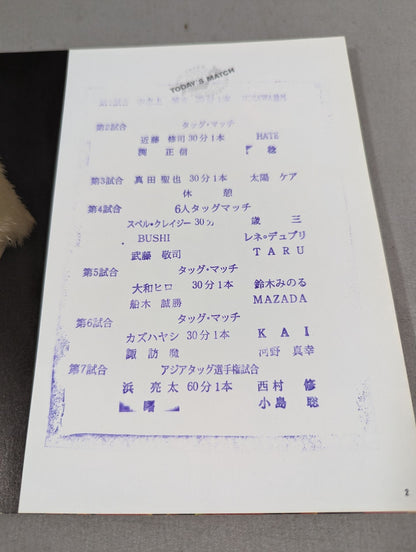 TODAY'S MATCH
30分1本
第2試合 タッグ・マッチ
近藤 修司 30分1本 HATE
正信 稔
第3試合 真田 聖也 30分1本 太陽 ケア
休 憩
第4試合 6人タッグマッチ
スペル・クレイジー 30分 歳 三
BUSHI レネ・デュプリ
武藤 敬司 TARU
第5試合 タッグ・マッチ
大和ヒロ 30分1本 鈴木みのる
船木 誠勝 MAZADA
第6試合 タッグ・マッチ
カズハヤシ 30分1本 KAI
諏訪魔 河野 真幸
第7試合 アジアタッグ選手権試合
浜 亮太 60分1本 西村 修
曙 小島 聡
2